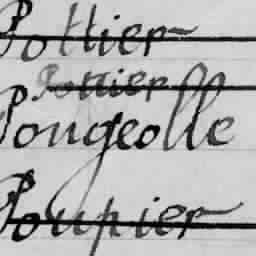 Pottier
Pottier
Pougeolle
Poupier